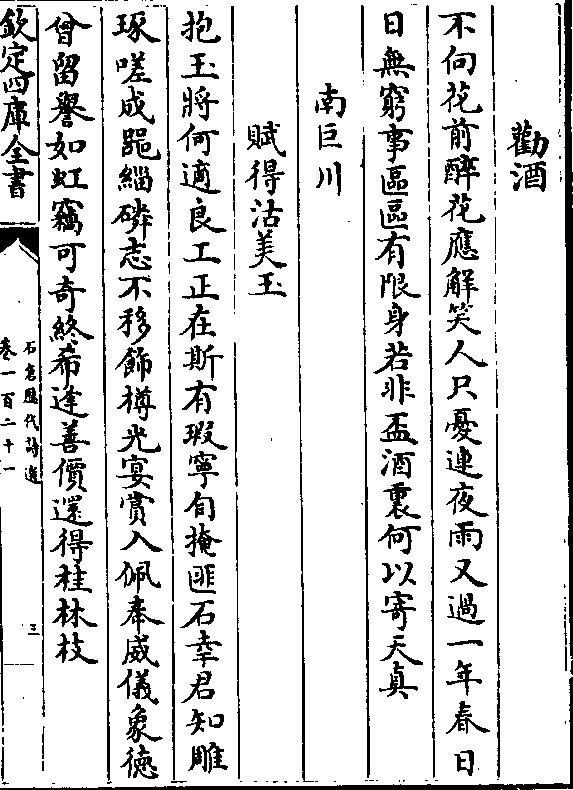 勸酒
不向花前醉花應解笑人只憂連夜雨又過一年春日
日無窮事區區有限身若非盃酒裏何以寄天真
南巨川
賦得沽美玉
抱玉將何適良工正在斯有瑕寧自掩匪石幸君知雕
琢嗟成器緇磷志不移飾樽光宴賞入佩奉威儀象徳
曾留譽如虹竊可奇終希逢善價還得桂林枝
欽定四庫全書
石倉歷代詩選
卷一百二十一
三